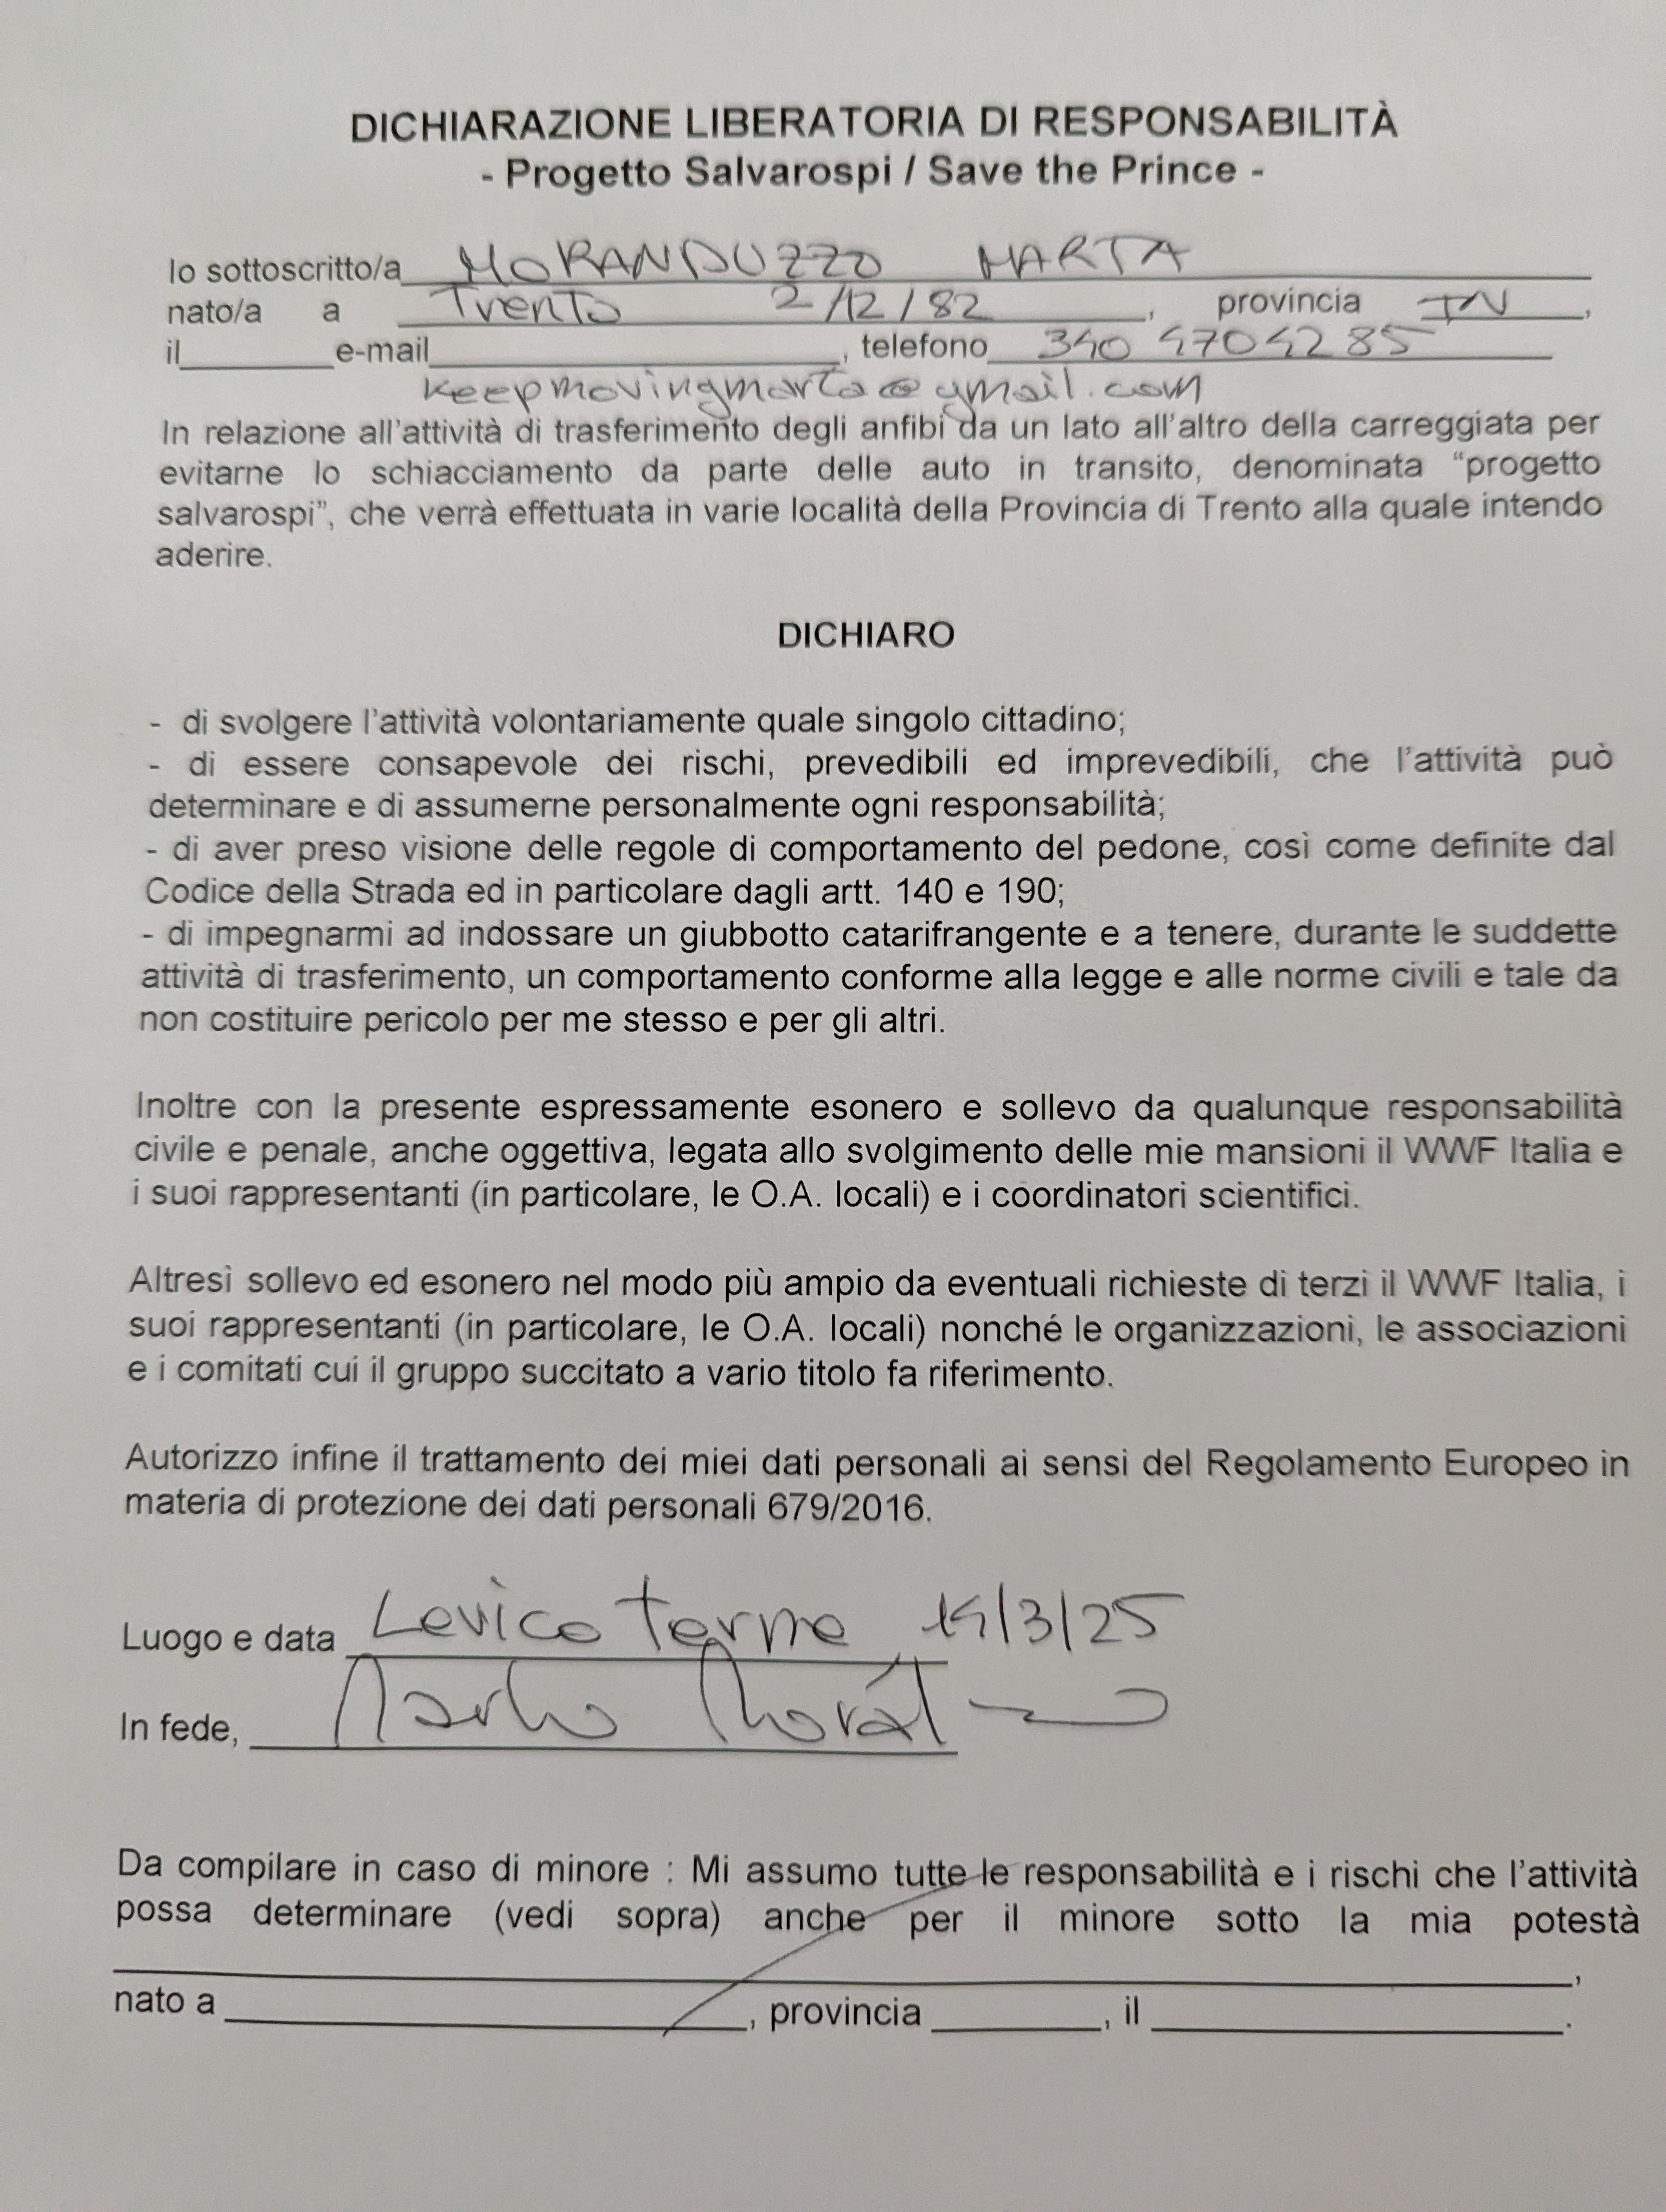 DICHIARAZIONE LIBERATORIA DI RESPONSABILITÀ
- Progetto Salvarospi / Save the Prince -
Io sottoscritto/a MORANDUZZO MARTA
nato/a a Trento 2/12/82, provincia TN,
il________ e-mail____________________, telefono 340 4704285
keepmovingmarta@gmail.com
In relazione all'attività di trasferimento degli anfibi da un lato all'altro della carreggiata per
evitarne lo schiacciamento da parte delle auto in transito, denominata "progetto
salvarospi", che verrà effettuata in varie località della Provincia di Trento alla quale intendo
aderire.
DICHIARO
- di svolgere l'attività volontariamente quale singolo cittadino;
- di essere consapevole dei rischi, prevedibili ed imprevedibili, che l'attività può
determinare e di assumerne personalmente ogni responsabilità;
- di aver preso visione delle regole di comportamento del pedone, così come definite dal
Codice della Strada ed in particolare dagli artt. 140 e 190;
- di impegnarmi ad indossare un giubbotto catarifrangente e a tenere, durante le suddette
attività di trasferimento, un comportamento conforme alla legge e alle norme civili e tale da
non costituire pericolo per me stesso e per gli altri.
Inoltre con la presente espressamente esonero e sollevo da qualunque responsabilità
civile e penale, anche oggettiva, legata allo svolgimento delle mie mansioni il WWF Italia e
i suoi rappresentanti (in particolare, le O.A. locali) e i coordinatori scientifici.
Altresì sollevo ed esonero nel modo più ampio da eventuali richieste di terzi il WWF Italia, i
suoi rappresentanti (in particolare, le O.A. locali) nonché le organizzazioni, le associazioni
e i comitati cui il gruppo succitato a vario titolo fa riferimento.
Autorizzo infine il trattamento dei miei dati personali ai sensi del Regolamento Europeo in
materia di protezione dei dati personali 679/2016.
Luogo e data Levico Terme 14/3/25
In fede, Marta
Da compilare in caso di minore : Mi assumo tutte le responsabilità e i rischi che l'attività
possa determinare (vedi sopra) anche per il minore sotto la mia potestà
____________________,
nato a ____________________, provincia ________, il ____________________.